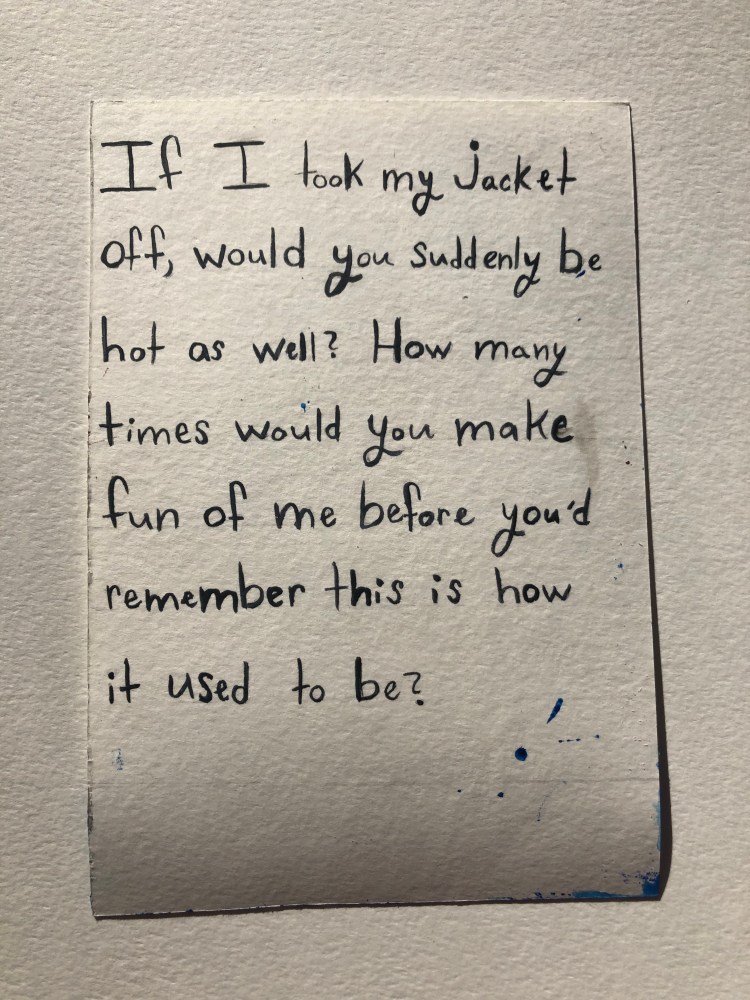 If I took my Jacket
off, would you suddenly be
hot as well? How many
times would you make
fun of me before you'd
remember this is how
it used to be?